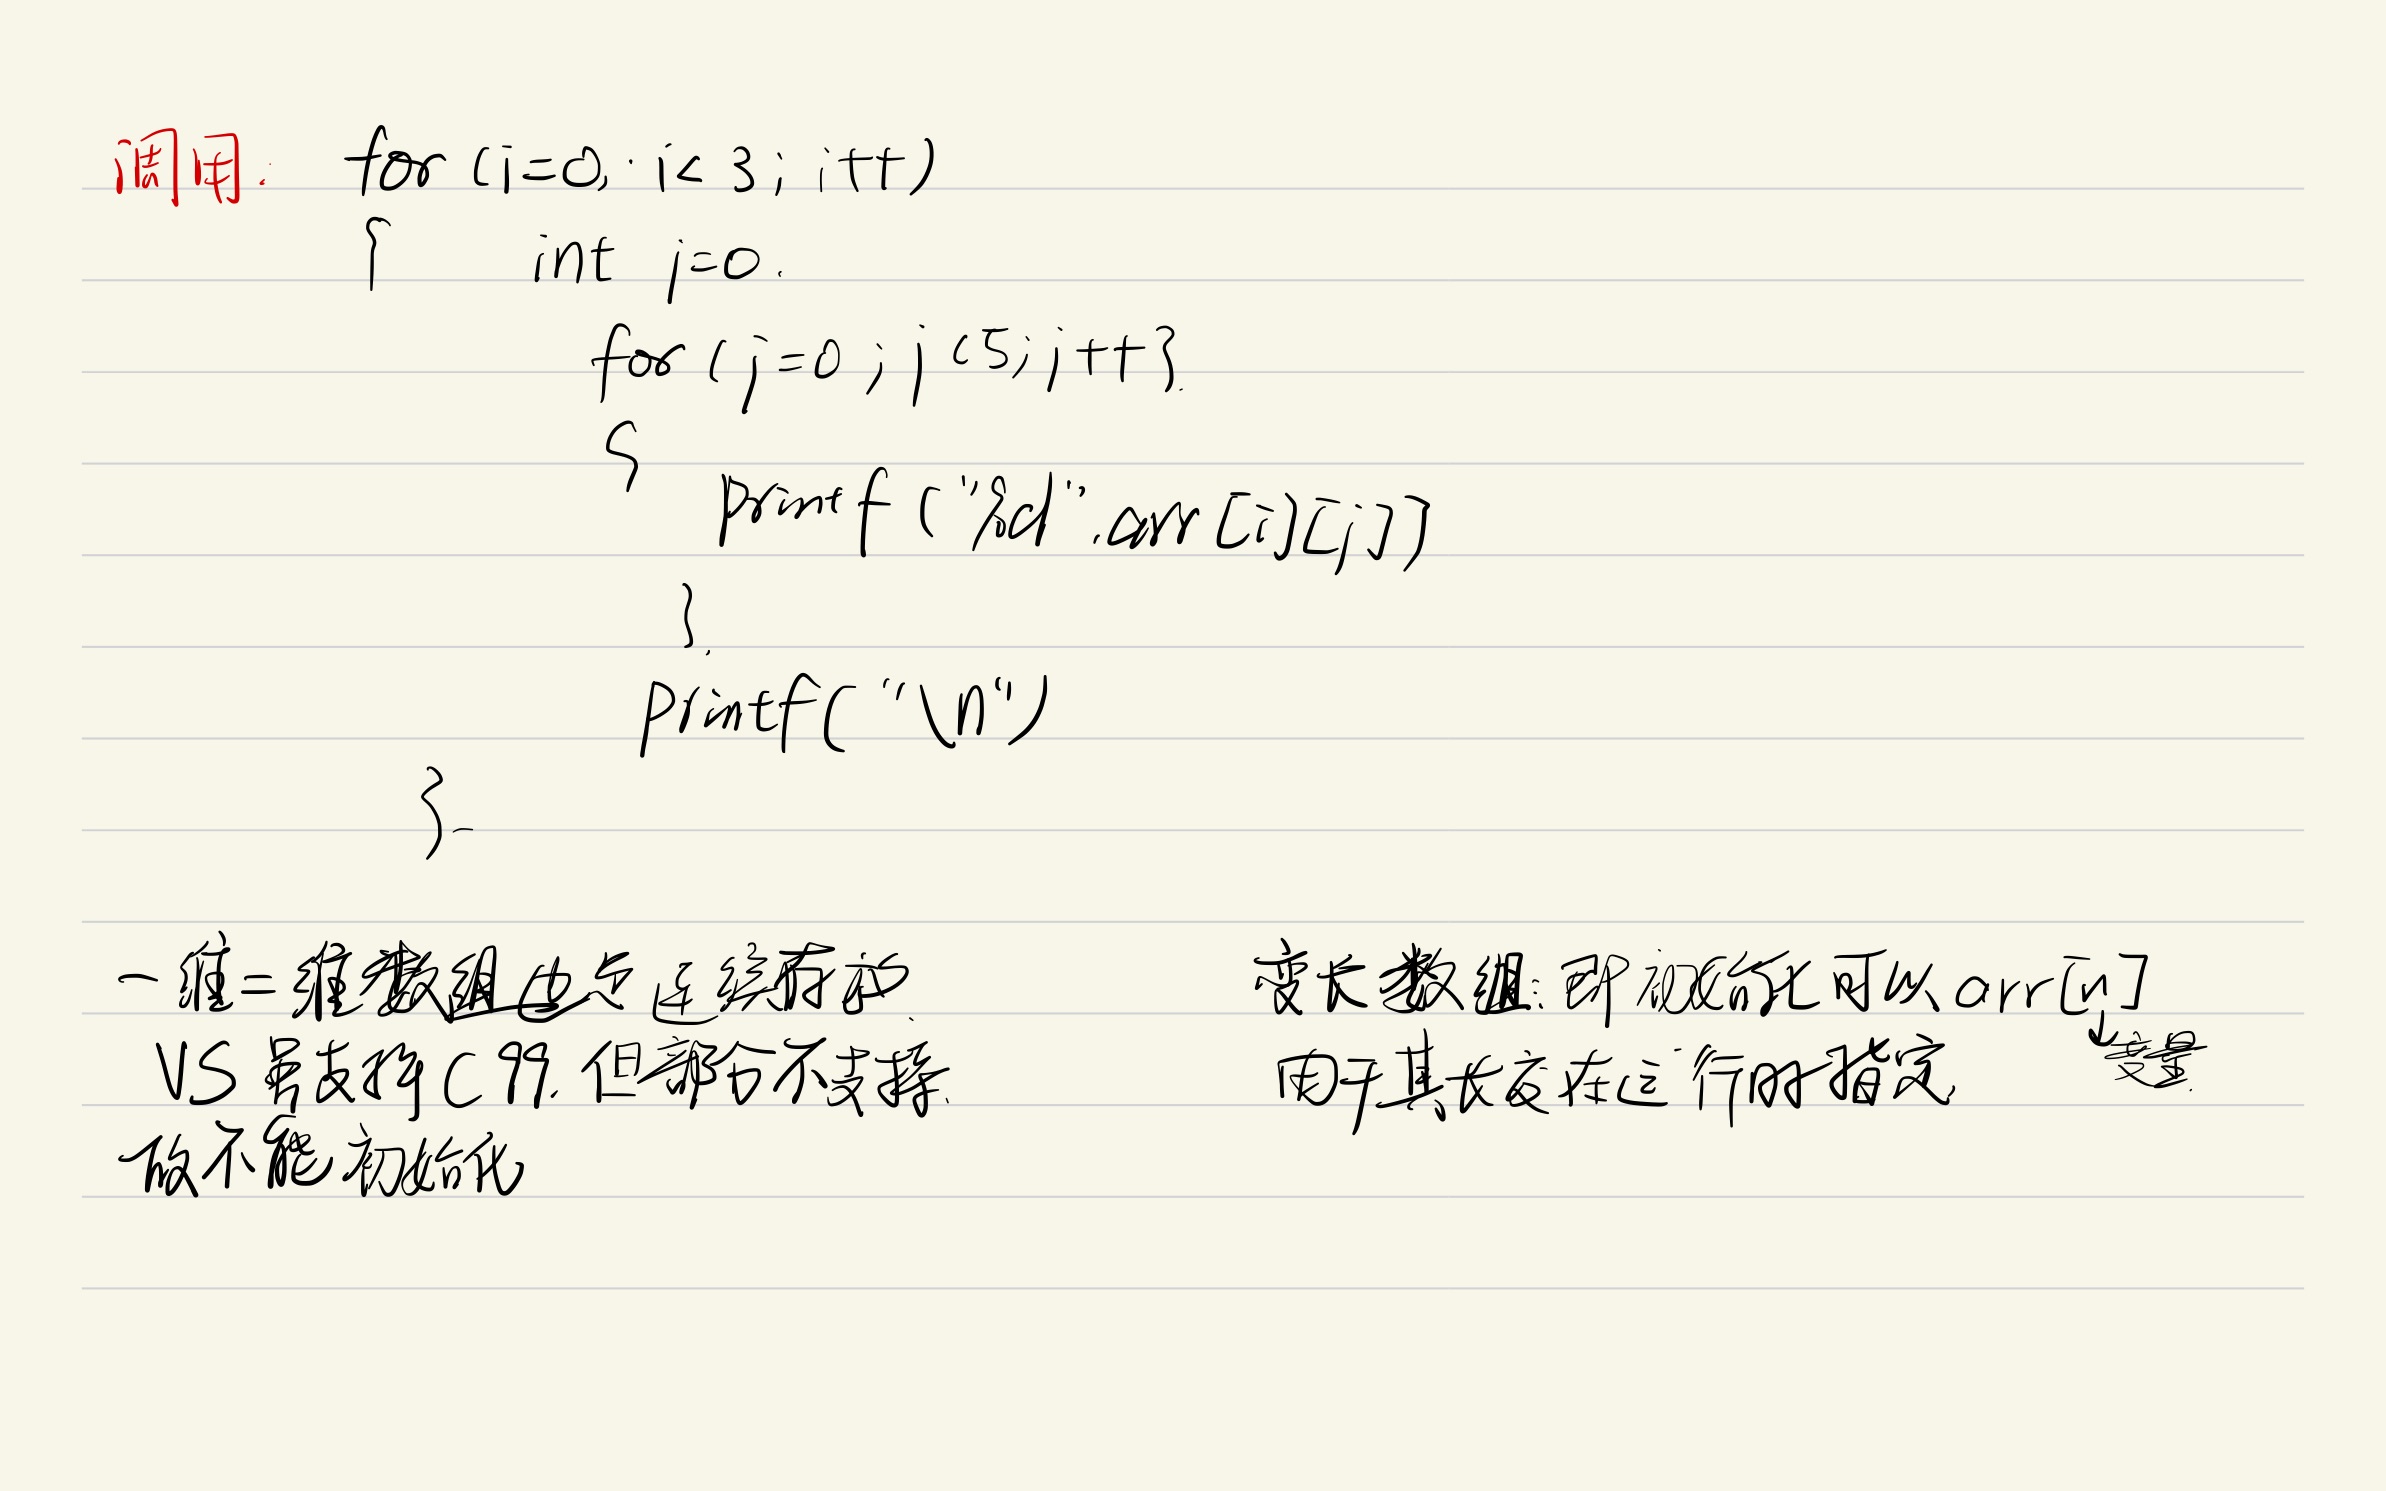 调用: for (i=0; i<3; i++)
{ int j=0.
for (j=0; j<5; j++}
{
printf ("%d".arr[i][j])
}
printf("\n")
}
一维二维数组也 连续存放.
VS 虽支持C99.但部分不支持.
故不能初始化
变长数组:即初始化可以 arr[n]
变量
用于其长度在运行时指定.